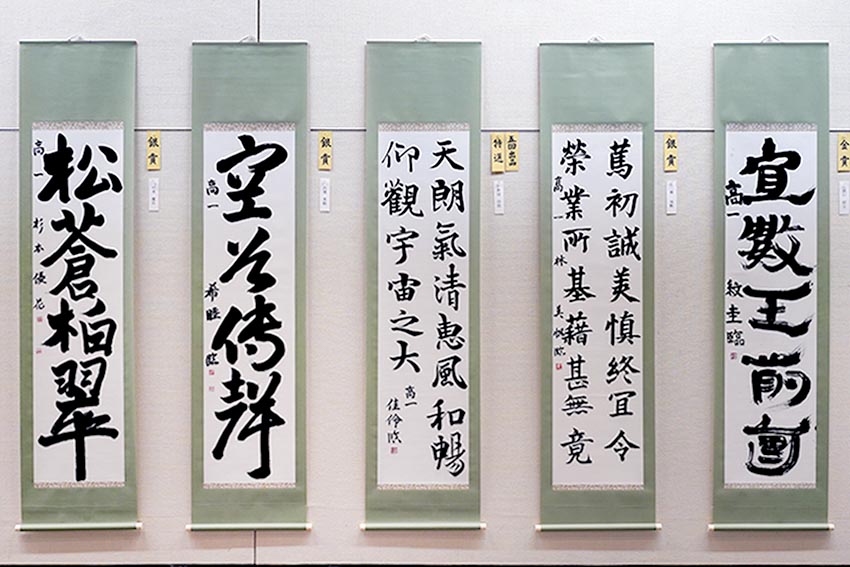 松蒼柏翠
高一 杉本優花
銀賞
空谷傳聲
高一 希睦臨
銀賞
天朗氣清惠風和暢
仰觀宇宙之大
高一
佳伶臨
特選
篤初誠美慎終宜令
榮業所基藉甚無竟
高一 林 美帆臨
銀賞
宣數王前會
高一 紋圭臨
金賞